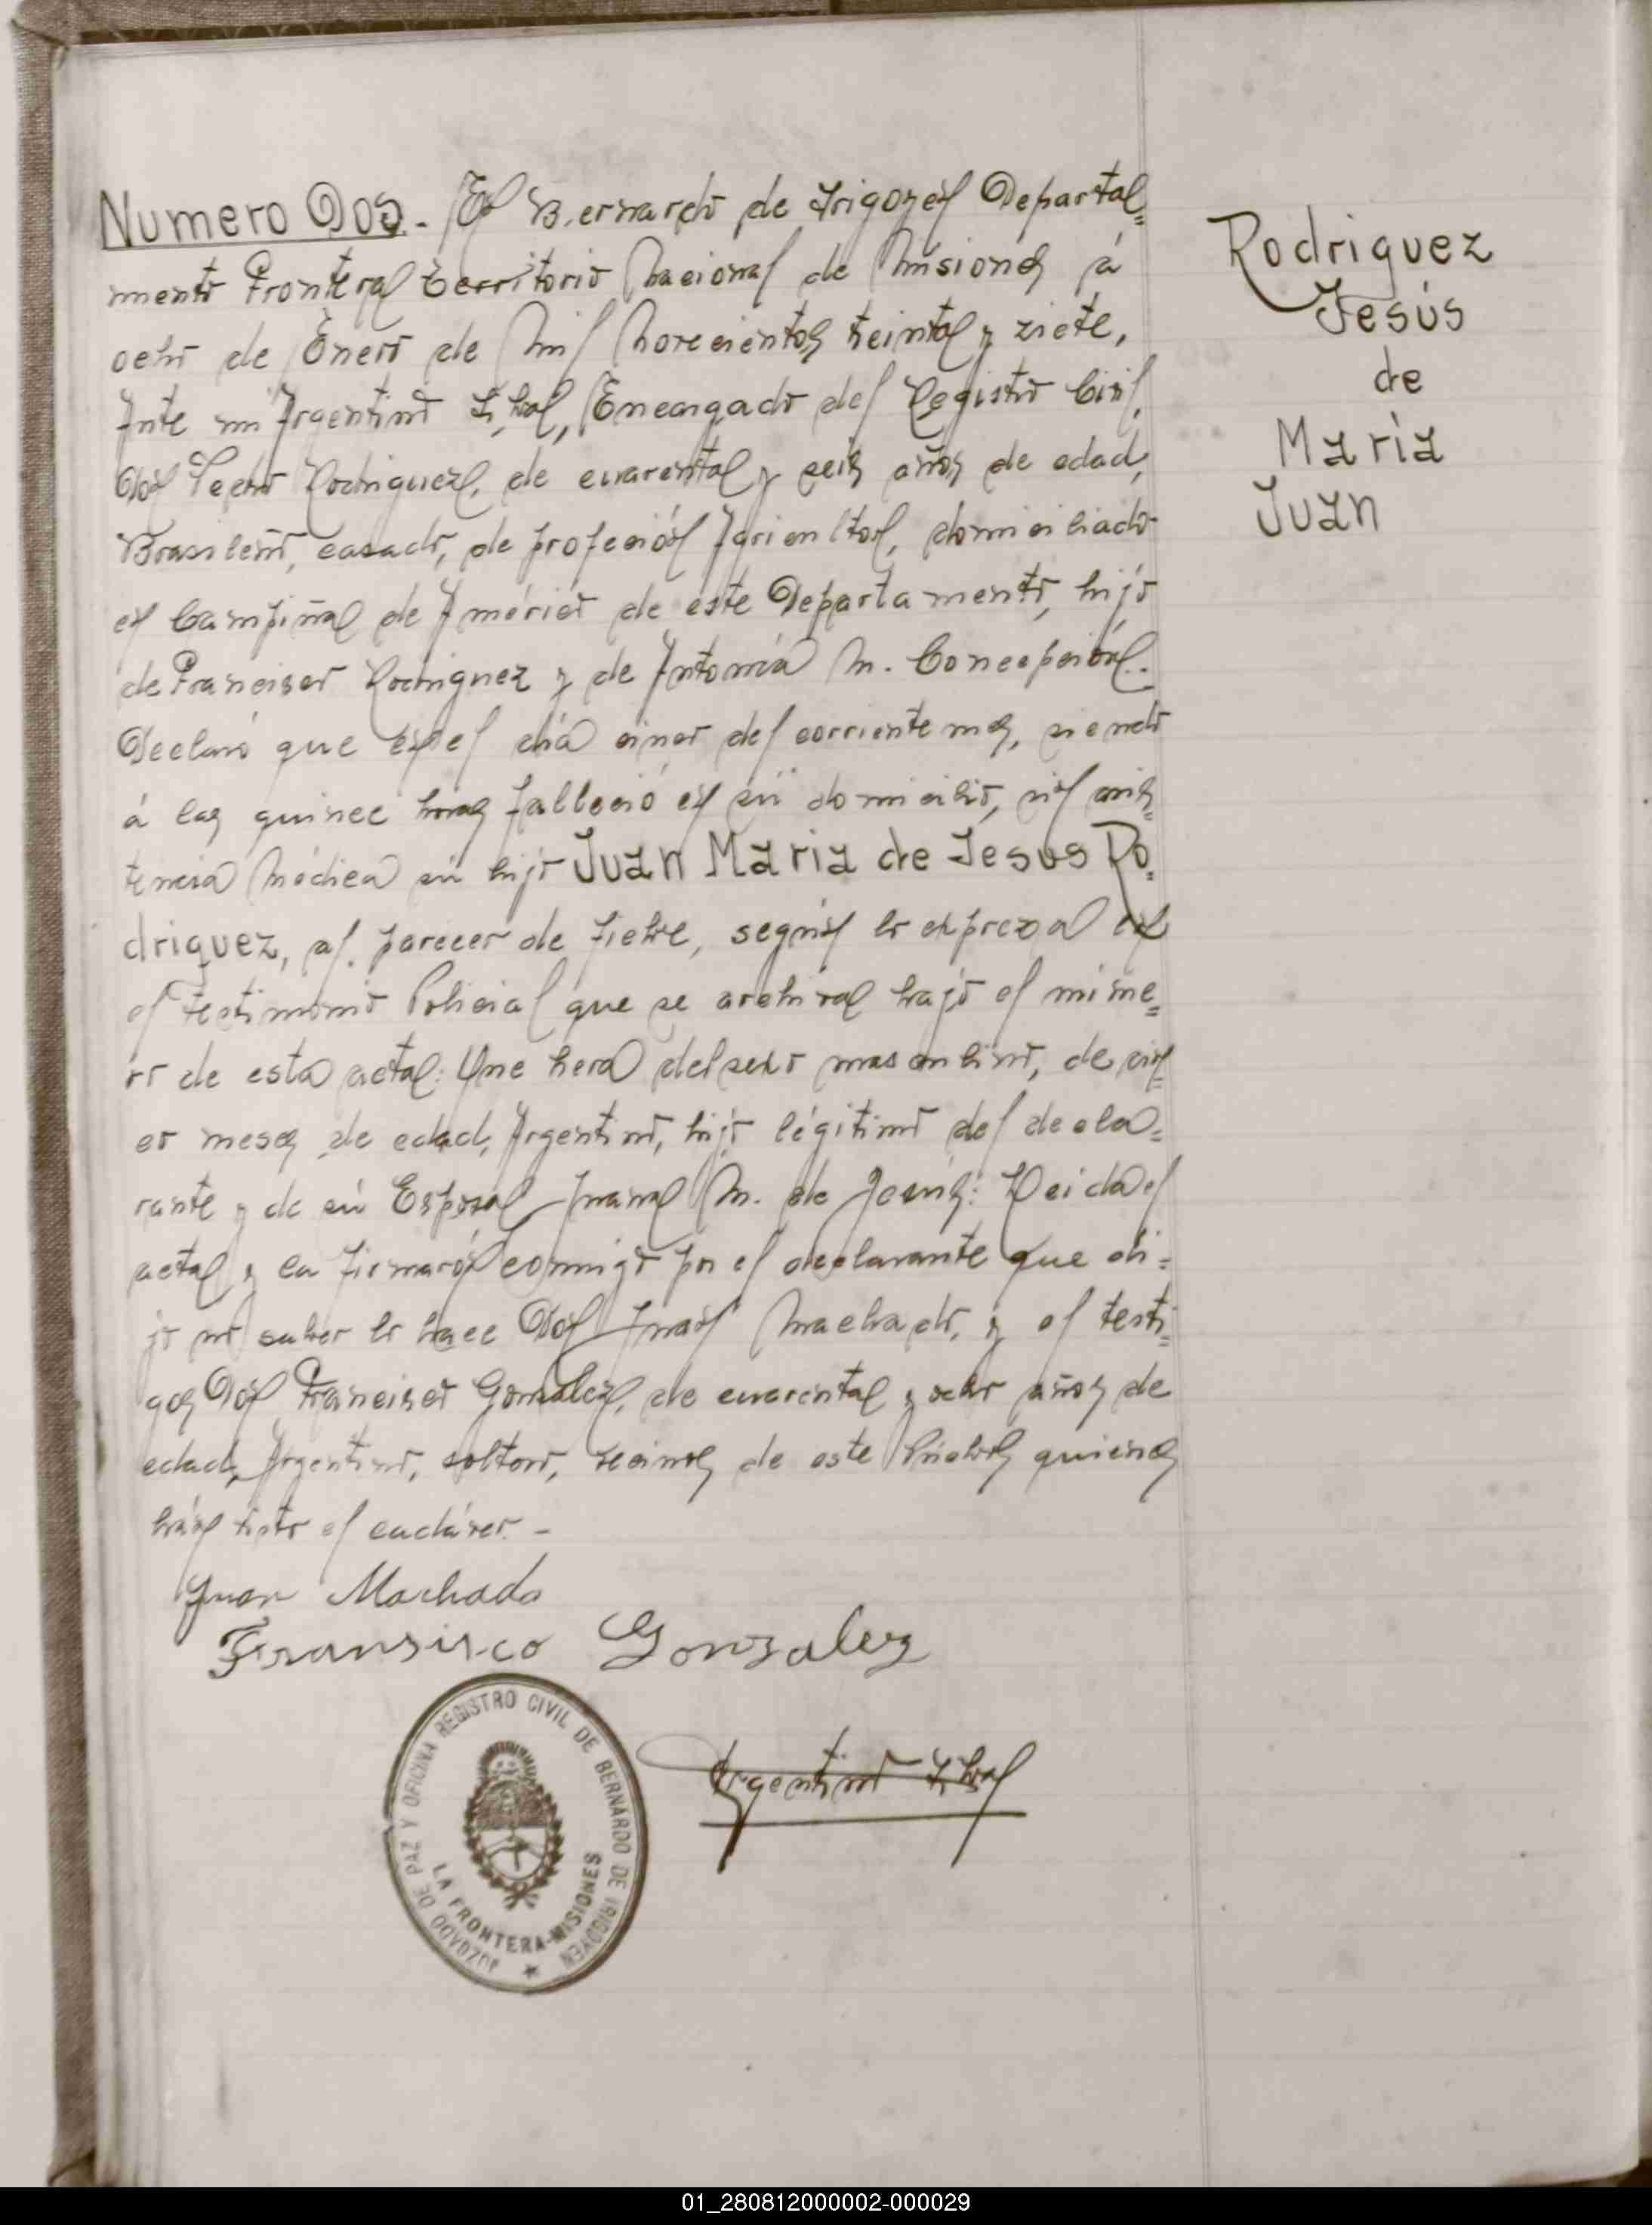 Numero Dos.- En Bernardo de Irigoyen Departa=
mento Frontera Territorio Nacional de Misiones á
ocho de Enero de Mil Novecientos treinta y ziete,
Ante mi Argentino Encargado del Registro Civil,
Don Pedro Rodriguez, de cuarenta y seis años de edad,
Brasileño, casado, de profeción Agricultor, domiciliado
en Campiña de Américo de este Departamento, hijo
de Francisco Rodriguez y de Antonia M. Concepción.-
Declaró que en el día cinco del corriente mes, siendo
á las quince horas falleció en su domicilio, sin asis=
tencia Médica su hijo Juan Maria de Jesus Ro=
driguez, al parecer de fiebre, según lo expreza en
el testimonio Policial que se archiva bajo el núme=
ro de esta acta: Que hera del sexo masculino, de cin=
co meses de edad, Argentino, hijo légitimo del decla=
rante y de su Esposa Juana M. de Jesús: Leida el
acta y la firmarón conmigo por el declarante que di=
jo no saber lo hace Don Juan Machado, y el testi=
gos Don Francisco Gonzalez, de cuarenta y ocho años de
edad, Argentino, soltero, vecinos de este Pueblo quienes
hán visto el cadáver.-
Juan Machado
Fransisco Gonzalez
Argentino
JUZGADO DE PAZ Y OFICINA REGISTRO CIVIL DE BERNARDO DE IRIGOYEN
LA FRONTERA-MISIONES
Rodriguez
Jesús
de
Maria
Juan
01_280812000002-000029